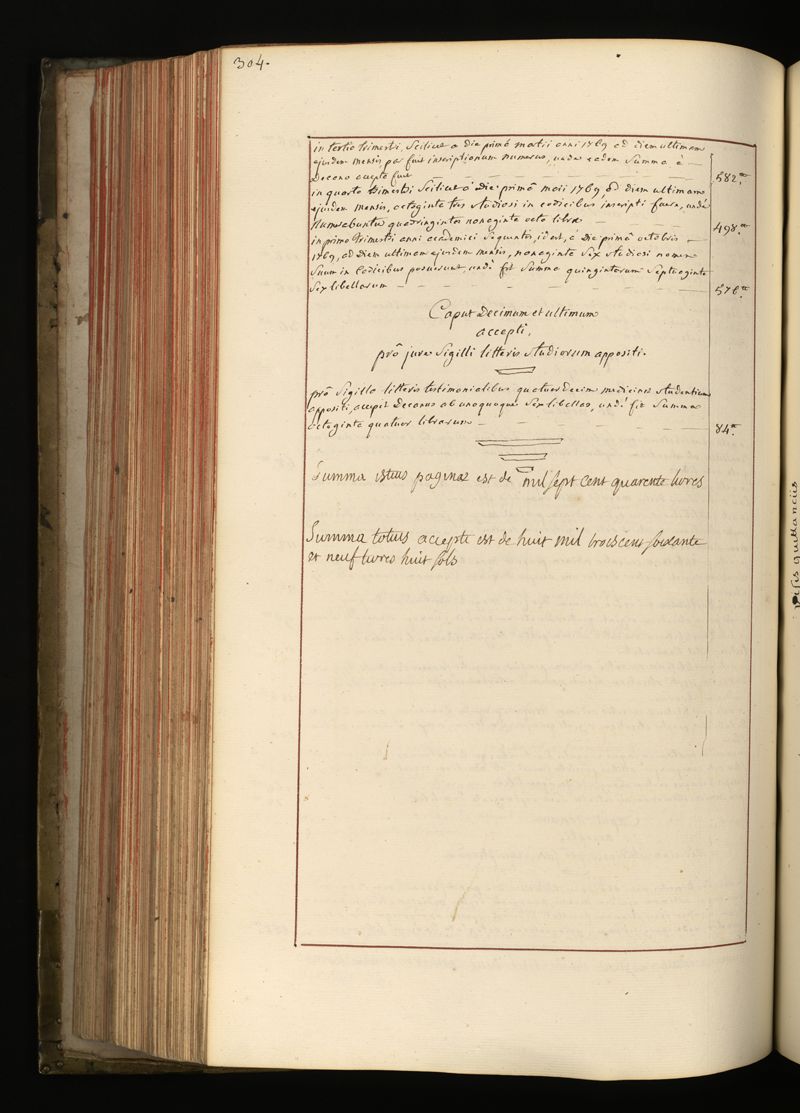 304.
in tertio trimestri, Scilicet a die primâ martii anni 1769 ad diem ultimam
ejusdem mensis, par fuit inscriptionum numerus, unde eadem Summa à
Decano accepta fuit 582.
in quarto trimestri Scilicet à Die primâ maii 1769 ad diem ultimam
ejusdem mensis, octoginta tres studiosi in codicibus inscripti fuere, undè
Numerabuntur quadringinta nonaginta octo librae 498.
in primo trimestri anni academici Sequentis, id est, à Die primâ octobris
1769, ad Diem ultimam ejusdem mensis, nonaginta Sex studiosi nomen
Suum in Codicibus posuerunt, undè fit Summa quingintorum Septuaginta
Sex libellorum 576.
Caput Decimum et ultimum
accepti,
prô jure Sigilli litteris studiosum appositi.
prô Sigillo litteris testimonialibus quatuor Decim medicinae studentium
appositi, accepit Decanus ab unoquoque Sex libellas, undè fit Summa
octoginta quatuor librarum 84.
Summa istius paginae est de mil sept cent quarente livres
Summa totius accepti est de huit mil trois cent soixante
et neuf livres huit sols
visis quittanciis